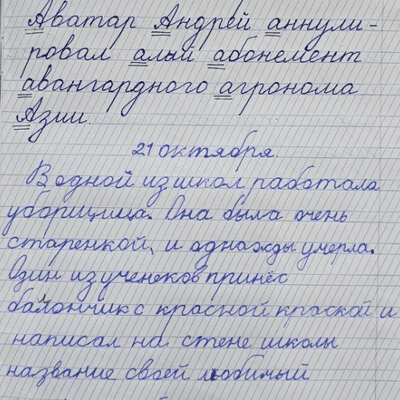 Аватар Андрей аннули-
ровал алый абонемент
авангардного агронома
Азии.
21 октября.
В одной из школ работала
уборщица. Она была очень
старенкой, и однажды умерла.
Один из ученеков принёс
балончик с красной краской и
написал на стене школы
название своей любимый